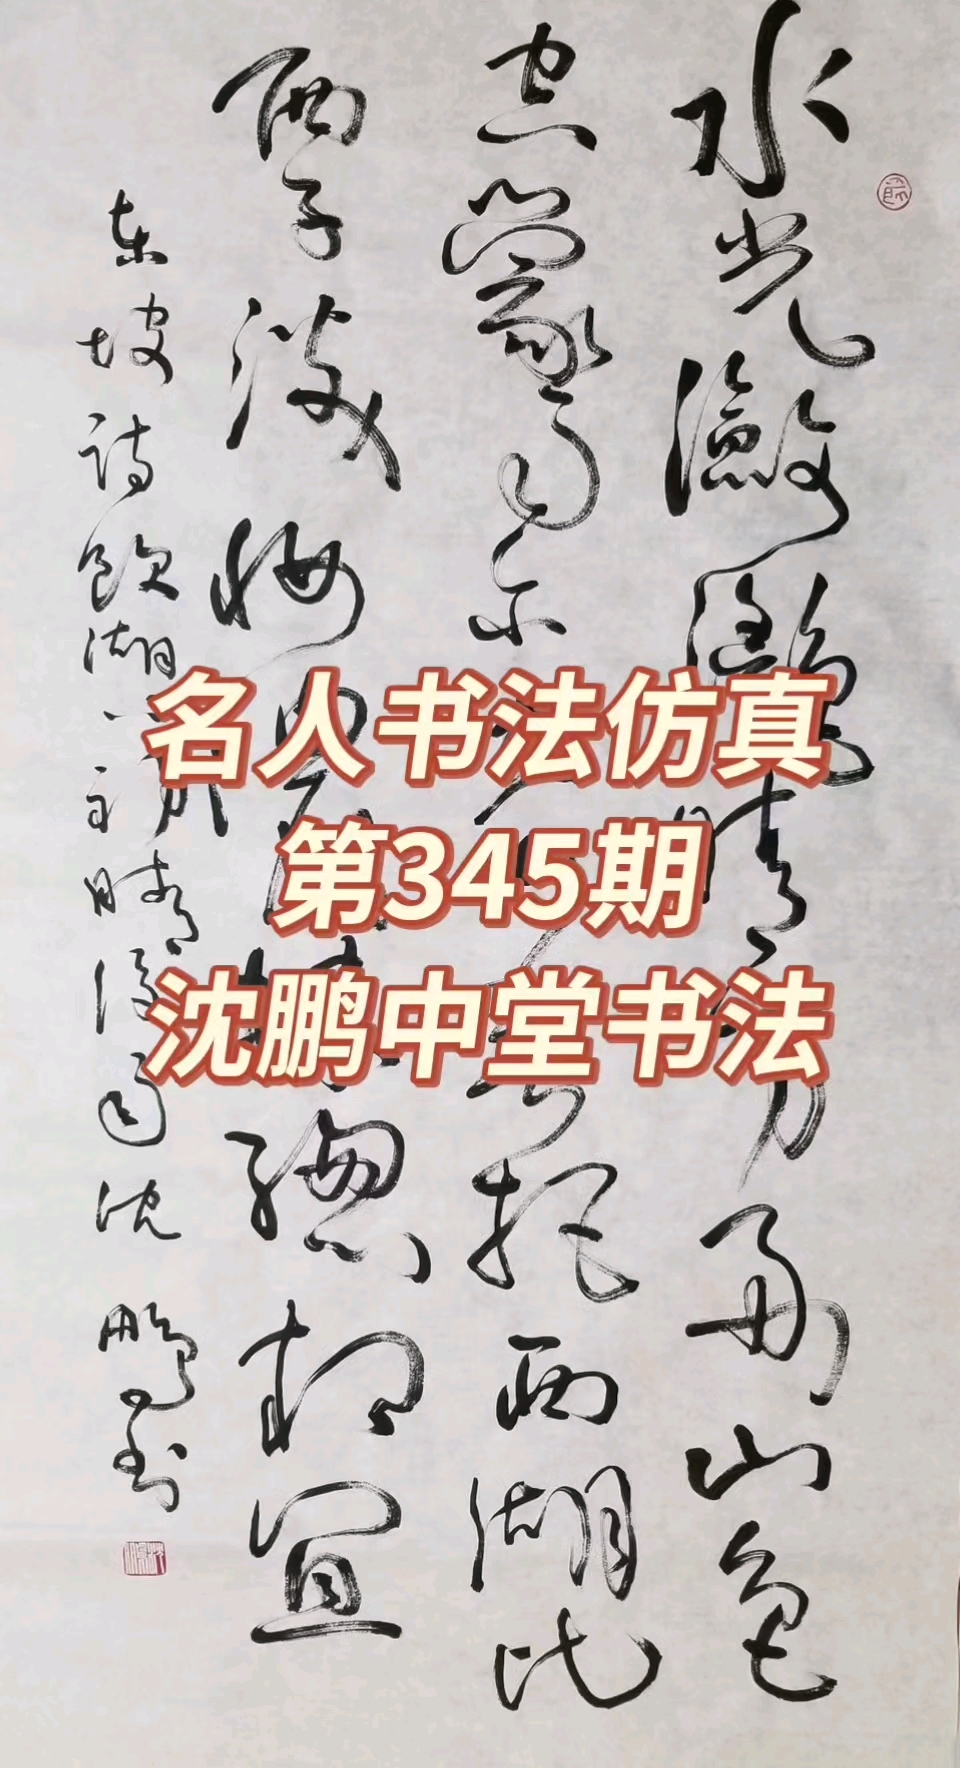 名人书法仿真
第345期
沈鹏中堂书法
水光瀲灩晴方好山色
空蒙雨亦把西湖比
西子淡妝總相宜
东坡诗飲湖上初晴後雨沈鹏书